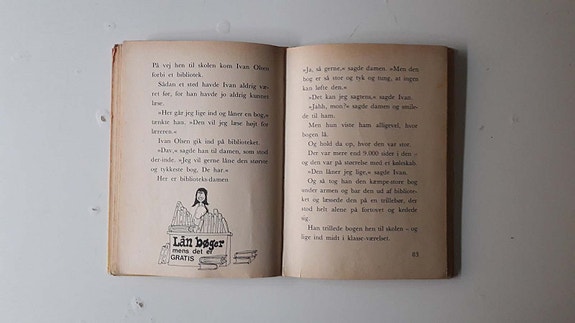 På vej hen til skolen kom Ivan Olsen
forbi et bibliotek.
Sådan et sted havde Ivan aldrig væ-
ret før, for han havde jo aldrig kunnet
læse.
»Her går jeg lige ind og låner en bog,«
tænkte han. »Den vil jeg læse højt for
læreren.«
Ivan Olsen gik ind på biblioteket.
»Dav,« sagde han til damen, som stod
der-inde. »Jeg vil gerne låne den største
og tykkeste bog, De har.«
Her er biblioteks-damen
Lån bøger
mens det er
GRATIS
»Ja, så gerne,« sagde damen. »Men den
bog er så stor og tyk og tung, at ingen
kan løfte den.«
»Det kan jeg sagtens,« sagde Ivan.
»Jahh, mon?« sagde damen og smile-
de til ham.
Men hun viste ham alligevel, hvor
bogen lå.
Og hold da op, hvor den var stor.
Der var mere end 9.000 sider i den –
og den var på størrelse med et køleskab.
»Den låner jeg lige,« sagde Ivan.
Og så tog han den kæmpe-store bog
under armen og bar den ud af bibliote-
ket og læssede den på en trillebør, der
stod helt alene på fortovet og kedede
sig.
Han trillede bogen hen til skolen – og
lige ind midt i klasse-værelset.
83